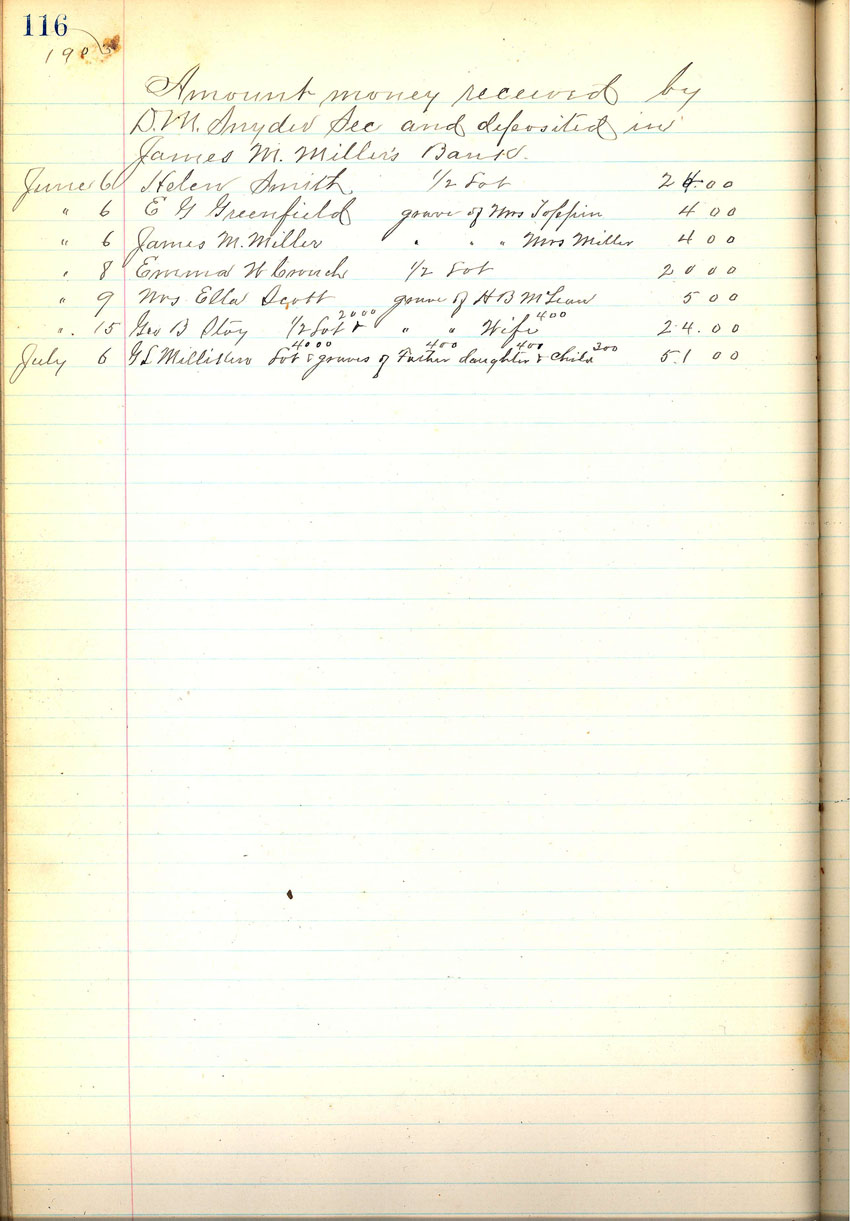 116
190
Amount money received by
D.M. Snyder Sec and deposited in
James M. Miller's Bank.
June 6 Helen Smith 1/2 Lot 24.00
" 6 E G Greenfield grave of Mrs Toppin 4 00
" 6 James M. Miller " " " Mrs Miller 4 00
" 8 Emma W Crouch 1/2 Lot 20 00
" 9 Mrs Ella Scott grave of H B McLean 5 00
" 15 Geo B Stoy 1/2 Lot 2000 & " " Wife 400 24.00
July 6 G L Milliken Lot 4000 & graves of Father 400 daughter 400 & child 300 51 00